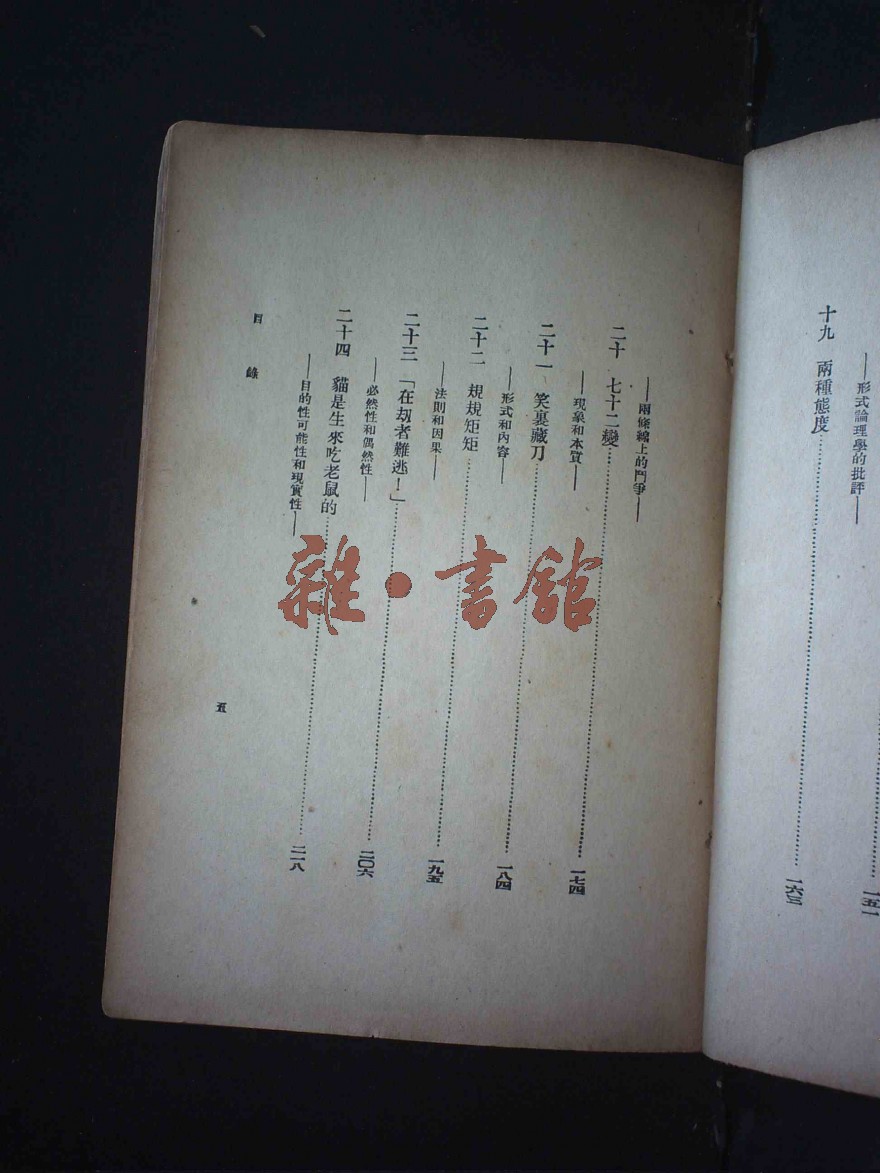 ——形式論理學的批評——
一五一
十九　兩種態度……………一六三
——兩條線上的鬥爭——
二十　七十二變……………一七四
——現象和本質——
二十一　笑裏藏刀……………一八四
——形式和內容——
二十二　規規矩矩……………一九五
——法則和因果——
二十三　「在劫者難逃！」……………二〇六
——必然性和偶然性——
二十四　貓是生來吃老鼠的……………二一八
——目的性可能性和現實性——
目錄
五
雜·書館